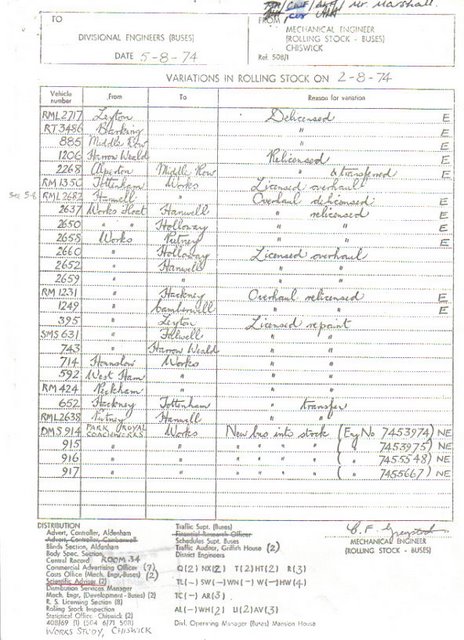 Mr. Marshall.
TO
DIVISIONAL ENGINEERS (BUSES)
DATE 5-8-74
FROM
MECHANICAL ENGINEER
(ROLLING STOCK - BUSES)
CHISWICK
Ref. 508/1
VARIATIONS IN ROLLING STOCK ON 2-8-74
Vehicle number From To Reason for variation
RML2717 Leyton Delicensed E
RT3486 Barking " E
885 Middle Row " E
1206 Harrow Weald Relicensed E
2268 Alperton Middle Row " & transferred E
RM1350 Tottenham Works Licensed overhaul
RML2682 Hanwell " Overhaul delicensed E
2637 Works Float Hanwell " relicensed E
2650 " " Holloway " " E
2658 Works Putney " " E
2660 " Holloway Licensed overhaul
2652 " Hanwell " "
2659 " " " "
RM1231 " Hackney Overhaul relicensed E
1249 " Camberwell " " E
395 " Leyton Licensed repaint
SMS 631 " Fulwell " "
743 " Harrow Weald " "
714 Hounslow Works " "
592 West Ham " " "
RM424 Peckham " " "
652 Hackney Tottenham " transfer
RML2638 Putney Hanwell " "
DMS 914 PARK ROYAL COACHWORKS Works New bus into stock (Eng No 7453974) NE
915 " " " " " " " ( " " 7453975) NE
916 " " " " " " " ( " " 7455548) NE
917 " " " " " " " ( " " 7455667) NE
DISTRIBUTION
Advert. Controller, Aldenham
Advert. Controller, Camberwell
Blinds Section, Aldenham
Body Spec. Section,
Central Record ROOM 34
Commercial Advertising Officer (7)
Costs Office (Mech. Engr. Buses) (2)
Scientific Adviser (2)
Distribution Services Manager
Mech. Engr. (Development-Buses) (2)
R. S. Licensing Section (8)
Rolling Stock Inspection
Statistical Office, Chiswick (2)
WORKS STUDY, CHISWICK
Traffic Supt. (Buses)
Financial Research Officer
Schedules Supt. Buses
Traffic Auditor, Griffith House (2)
District Engineers
Q(2) NX(2) T(2) HT(2) R(3)
TL(-) SW(-) WH(-) W(-) HW(4)
TC(-) AR(3)
AL(-) WH(2) U(2) AV(3)
Divl. Operating Manager (Buses) Mansion House
MECHANICAL ENGINEER
(ROLLING STOCK - BUSES)